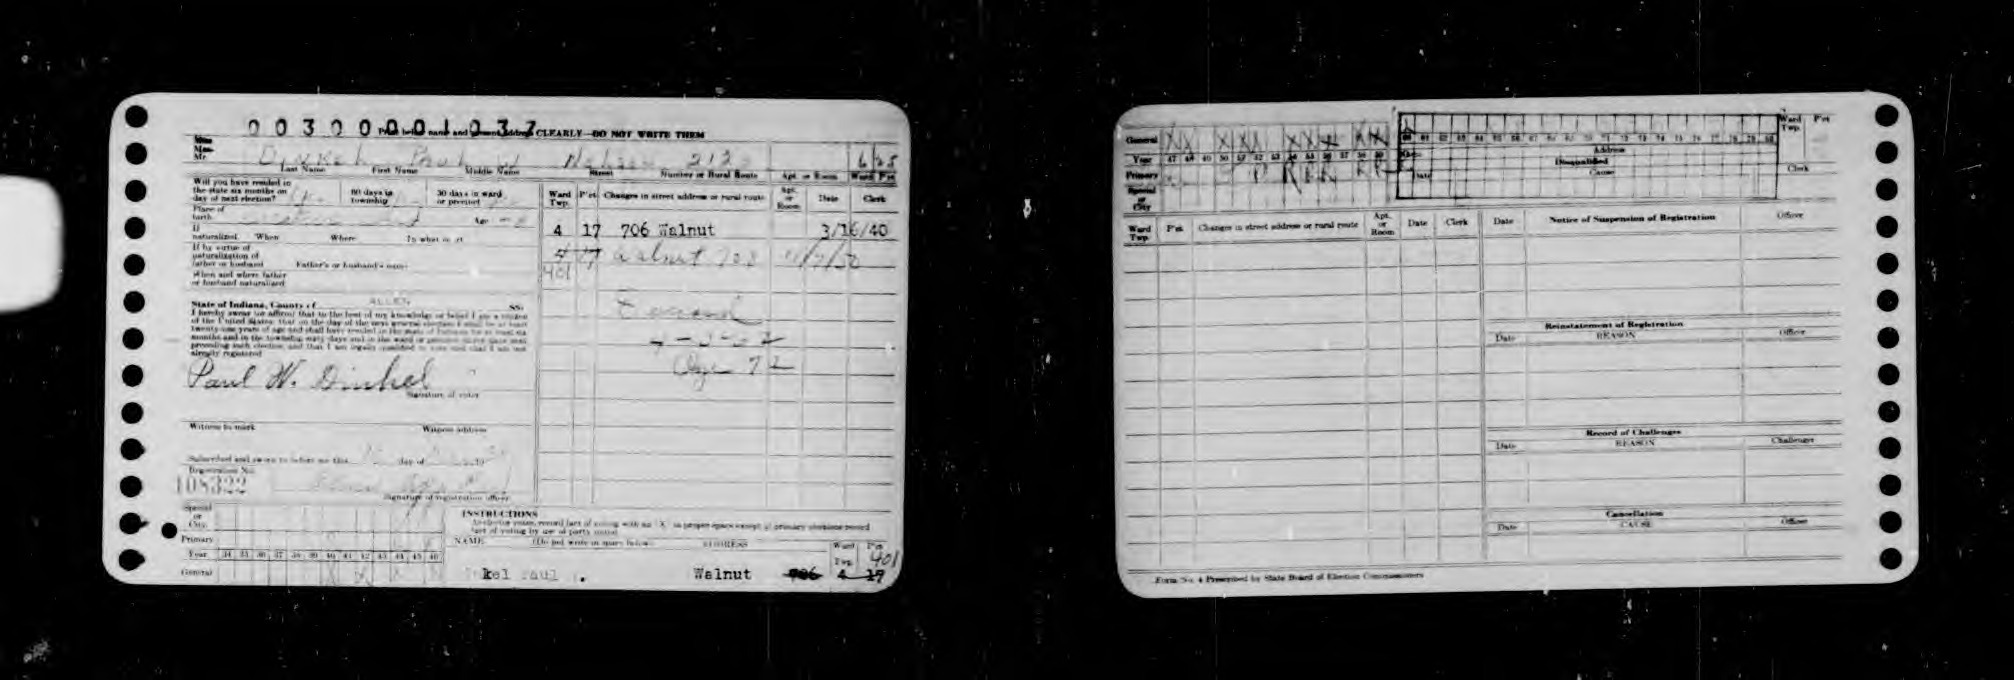 003000001037
Print below name and present address CLEARLY—DO NOT WRITE THEM
Miss
Mrs.
Mr. Dinkel Paul W Nelson 212 6/25
Last Name First Name Middle Name Street Number or Rural Route Apt. or Room Ward P'ct
Will you have resided in
the state six months on
day of next election? 60 days in
township 30 days in ward
or precinct
Ward
Twp. P'ct Changes in street address or rural route Apt.
or
Room Date Clerk
Place of
birth Age
If
naturalized When Where In what court
4 17 706 Walnut 3/16/40
If by virtue of
naturalization of
father or husband Father's or husband's name
4 17 Walnut 708 11/7/50
401
When and where father
or husband naturalized
State of Indiana, County of ALLEN SS:
I hereby swear (or affirm) that to the best of my knowledge or belief I am a citizen
of the United States; that on the day of the next general election I shall be at least
twenty-one years of age and shall have resided in the state of Indiana for at least six
months and in the township sixty days and in the ward or precinct thirty days next
preceding such election and that I am legally qualified to vote and that I am not
already registered
Age 72
Paul W. Dinkel
Signature of voter
Witness to mark Witness address
Subscribed and sworn to before me this day of
Registration No.
108322
Signature of registration officer
Special
or
City
Primary
Year 34 35 36 37 38 39 40 41 42 43 44 45 46
General
INSTRUCTIONS
As election voter, record fact of voting with an (X) in proper space except at primary elections record
fact of voting by use of party initial
NAME (Do not write in space below) ADDRESS Ward
Twp. P'ct
401
kel Paul . Walnut 706 4 17
General XX XXX XXX XX
Year 47 48 49 50 51 52 53 54 55 56 57 58 59
Primary
Special
or
City
60 61 62 63 64 65 66 67 68 69 70 71 72 73 74 75 76 77 78 79 80
Ward
Twp. P'ct
Address
Disqualified
Date Cause
Clerk
Ward
Twp. P'ct Changes in street address or rural route Apt.
or
Room Date Clerk
Date Notice of Suspension of Registration Officer
Reinstatement of Registration
Date REASON Officer
Record of Challenges
Date REASON Challenger
Cancellation
Date CAUSE Officer
Form No. 4 Prescribed by State Board of Election Commissioners